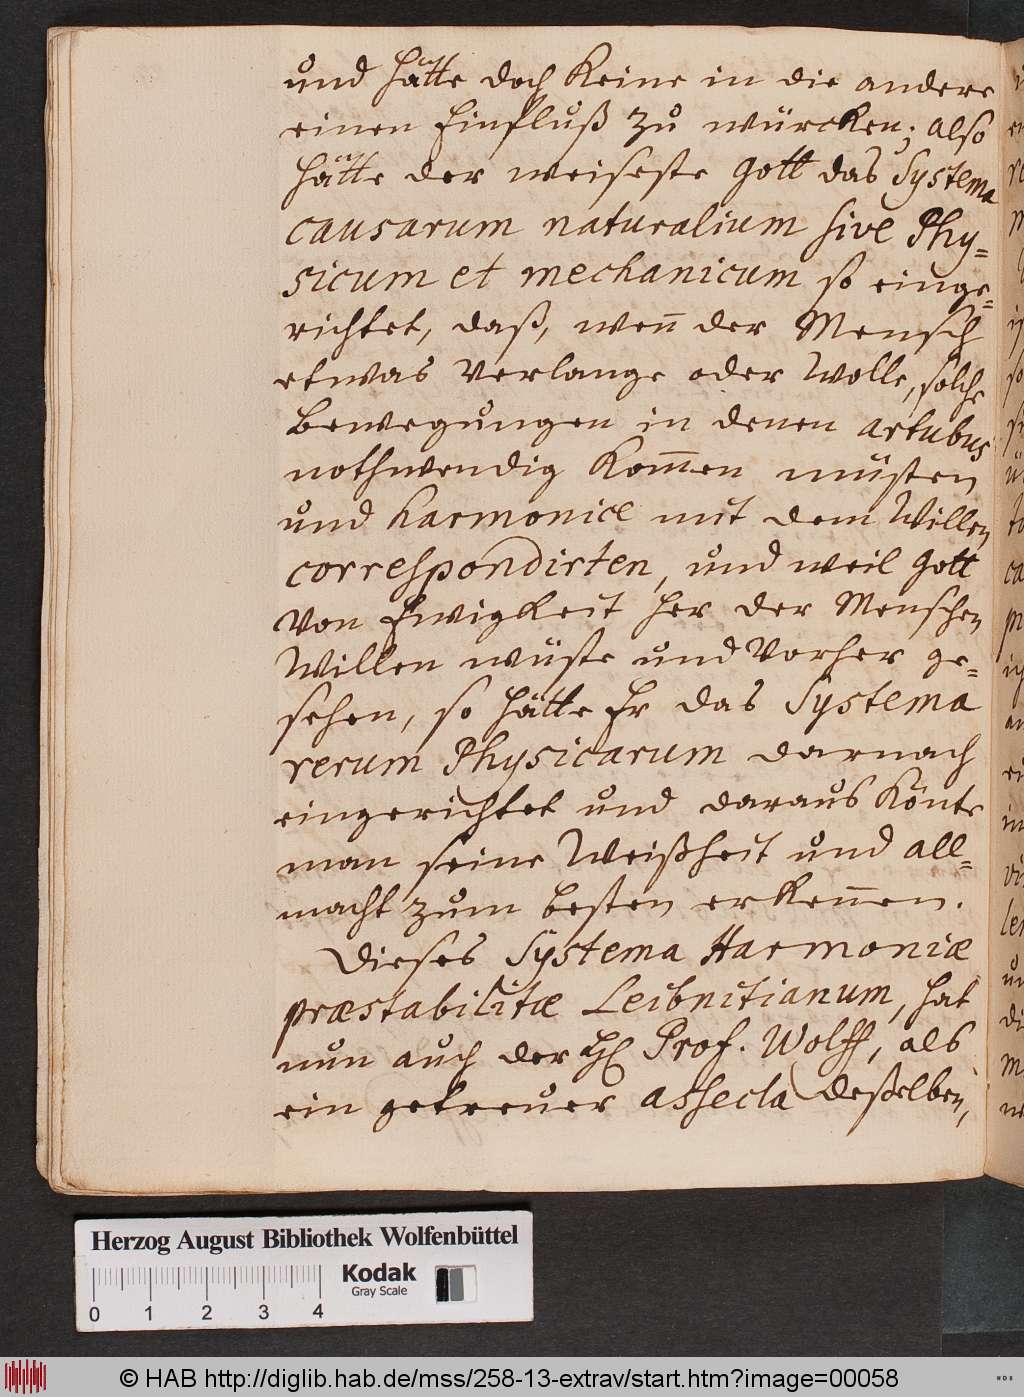 und hätte doch keine in die andere
einen Einfluß zu würcken; also
hätte der weiseste Gott das Systema
causarum naturalium sive Phy=
sicum et mechanicum so einge=
richtet, daß, weñ der Mensch
etwas verlange oder wolle, solche
Bewegungen in denen artubus
nothwendig kom̄en müsten
und harmonice mit dem Willen
correspondirten, und weil Gott
von Ewigkeit her der Menschen
Willen wüste und vorher ge=
sehen, so hätte Er das Systema
rerum Physicarum darnach
eingerichtet und daraus könte
man seine Weißheit und all=
macht zum besten erkeñen.
Dieses Systema Harmoniæ
præstabilitæ Leibnitianum, hat
nun auch der H. Prof. Wolff, als
ein getreuer assecla deßelben,
Herzog August Bibliothek Wolfenbüttel
Kodak
Gray Scale
0 1 2 3 4
© HAB http://diglib.hab.de/mss/258-13-extrav/start.htm?image=00058